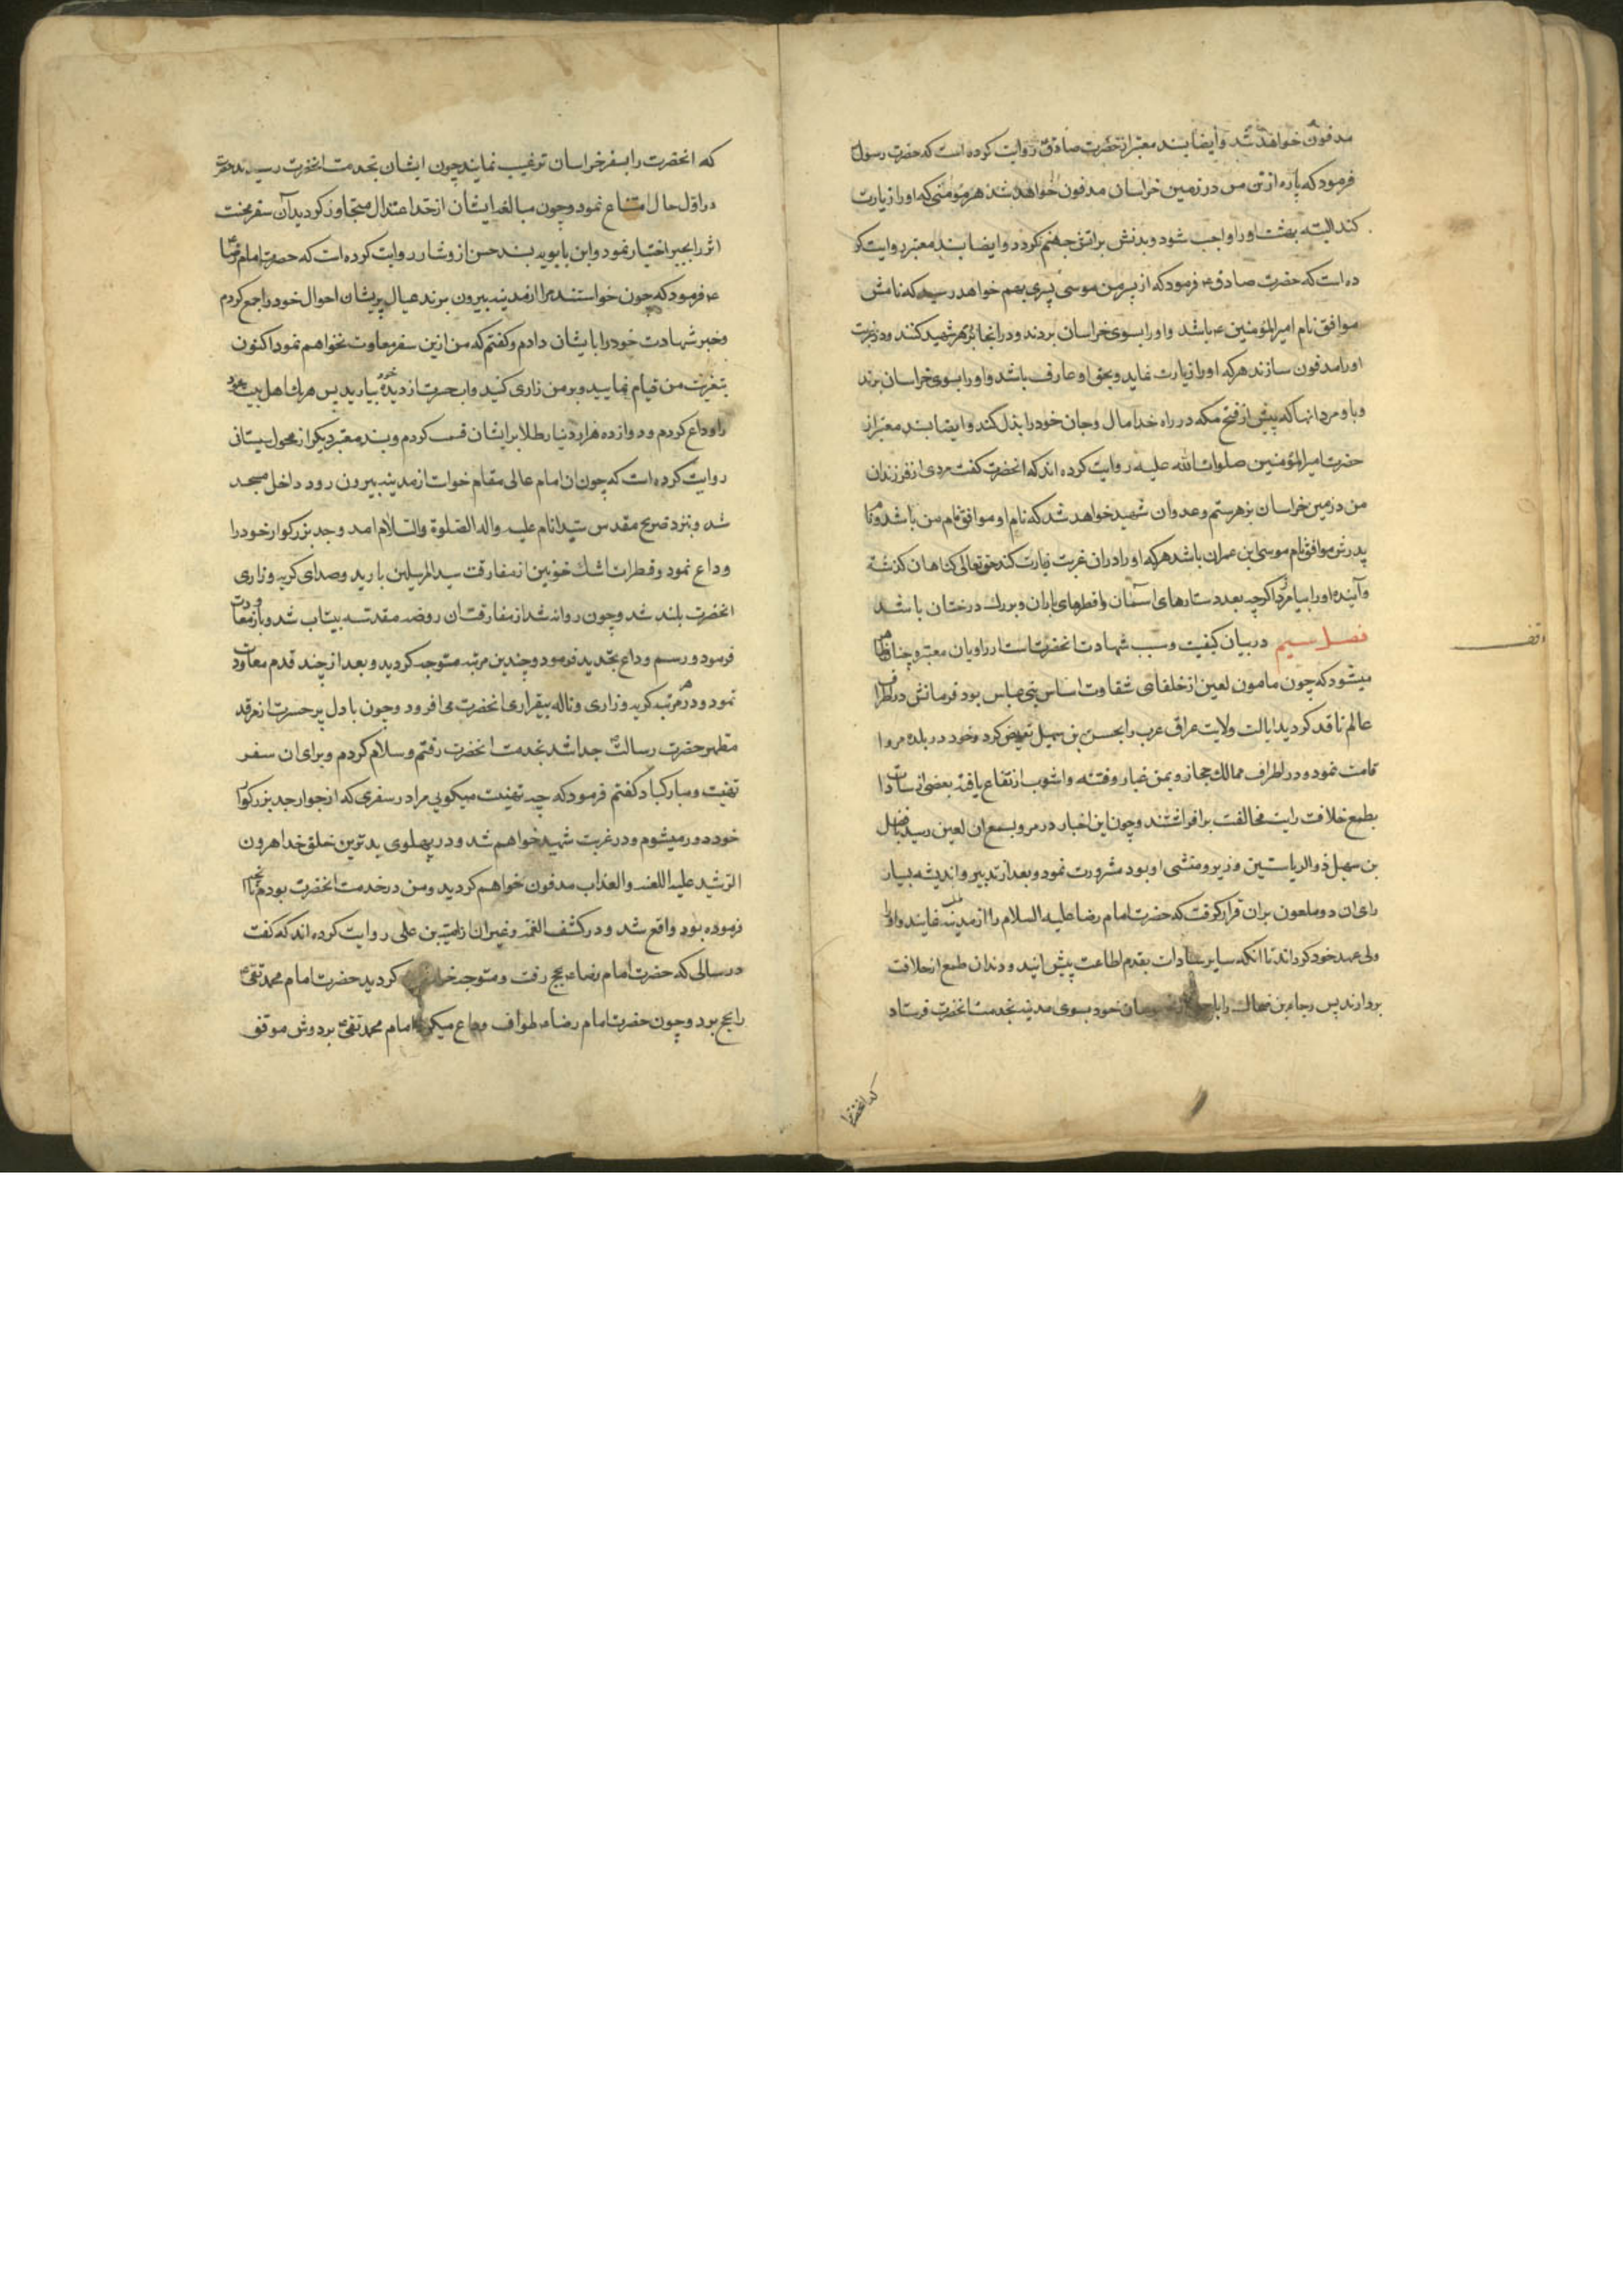 مدفون خواهد شد و ایضا بسند معتبر از حضرت صادق ع روایت کرده است که حضرت رسول ص
فرمود که پاره از تن من در زمین خراسان مدفون خواهد شد هر مؤمنی که او را زیارت
کند البته بهشت او را واجب شود و بدنش بر اتش جهنم کردد و ایضا بسند معتبر روایت کر
ده است که حضرت صادق ع فرمود که از پسر من موسی پسری بهم خواهد رسید که نامش
موافق نام امیر المؤمنین ع باشد و او را بسوی خراسان بردند و در انجا بزهر شهید کنند و در غربت
او را مدفون سازند هر که او را زیارت نماید و بحق او عارف باشد و او را بسوی خراسان برند
و با و مرد انها که پیش از فتح مکه در راه خدا مال و جان خود را بذل کند و ایضا بسند معتبر از
حضرت امیر المؤمنین صلوات الله علیه روایت کرده اند که انحضرت کفت مردی از فرزندان
من در زمین خراسان بزهر ستم و عدوان شهید خواهد شد که نام او موافق نام من باشد و نام
پدرش موافق نام موسی ابن عمران باشد هر که او را در ان غربت زیارت کند حق تعالی کناهان کذشته
و آینده او را بیامرزد اکرچه بعدد ستارهای اسمان و قطرهای باران و برک درختان باشد
فصل سیم در بیان کیفیت و سبب شهادت انحضرتست از راویان معتبر و چنان ظاهر
میشود که چون مامون لعین از خلفای شقاوت اساس بنی عباس بود فرمانش در اطراف
عالم نافد کردید ایالت ولایت عراق عرب را بحسن بن سهیل تفویض کرد و خود در بلده مرو ا
قامت نمود و در اطراف ممالک حجاز و یمن غبار و فتنه و اشوب ارتفاع یافته بعضی از سادات
بطمع خلافت رایت مخالفت برافراشتند و چون این اخبار در مرو بسمع ان لعین رسید با فضل
بن سهیل ذو الریاستین وزیر و منشی او بود مشورت نمود و بعد از تدبیر و اندیشه بسیار
رای ان دو ملعون بران قرار کرفت که حضرت امام رضا علیه السلام را از مدینه طلب نمایند و او را
ولی عهد خود کرداند تا انکه سایر سادات بقدم اطاعت پیش ایند و دندان طمع از خلافت
بردارند پس رجاء بن ضحاک را با خود بسوی مدینه بخدمت انحضرت فرستاد
که انحضرت را
که انحضرت را بسفر خراسان ترغیب نمایند چون ایشان بخدمت انحضرت رسیدند حضرت
در اول حال امتناع نمود و چون مبالغه ایشان از حد اعتدال متجاوز کردید آن سفر محنت
اثر را بجبر اختیار نمود و ابن بابویه بسند حسن از وشار روایت کرده است که حضرت امام رضا
ع فرمود که چون خواستند مرا از مدینه بیرون برند عیال پریشان احوال خود را جمع کردم
و خبر شهادت خود را بایشان دادم و کفتم که من ازین سفر معاوت نخواهم نمود اکنون
بتعزیت من قیام نمایید و بر من زاری کنید و اب حسرت از دیدۀ خود بیارید پس هر یک از اهل بیت خود
را وداع کردم و دوازده هزار دنیار طلا بر ایشان قسمت کردم و بسند معتبر دیکر از محول سیستانی
روایت کرده است که چون ان امام عالی مقام خواست از مدینه بیرون رود داخل مسجد
شد و بنزد ضریح مقدس سید انام علیه و اله الصلوة و السلام امد و جد بزرکوار خود را
وداع نمود و قطرات اشک خونین از مفارقت سید المرسلین بارید و صدای کریه و زاری
انحضرت بلند شد و چون روانه شد از مفارقت ان روضه مقدسه بیتاب شد و باز معاودت
فرمود و رسم وداع بتجدید فرمود و چندین مرتبه متوجه کردید و بعد از چند قدم معاودت
نمود و در هر مرتبه کریه و زاری و ناله بیقراری انحضرت می افزود و چون با دل پر حسرت از مرقد
مطهر حضرت رسالت ص جدا شد بخدمت انحضرت رفتم و سلام کردم و برای ان سفر
تهنیت و مبارکباد کفتم فرمود که چه تهنیت میکویی مرا در سفری که از جوار جد بزرکوار
خود دور میشوم و در غربت شهید خواهم شد و در پهلوی بدترین خلق خدا هرون
الرشید علیه اللعنه و العذاب مدفون خواهم کردید و من در خدمت انحضرت بودم تا انچه
فرموده بود واقع شد و در کشف الغمه و غیر ان از امیة بن علی روایت کرده اند که کفت
در سالی که حضرت امام رضا ع بحج رفت و متوجه خراسان کردید حضرت امام محمد تقی ع
را بحج برد و چون حضرت امام رضا ع طواف وداع میکرد امام محمد تقی ع بر دوش موفق